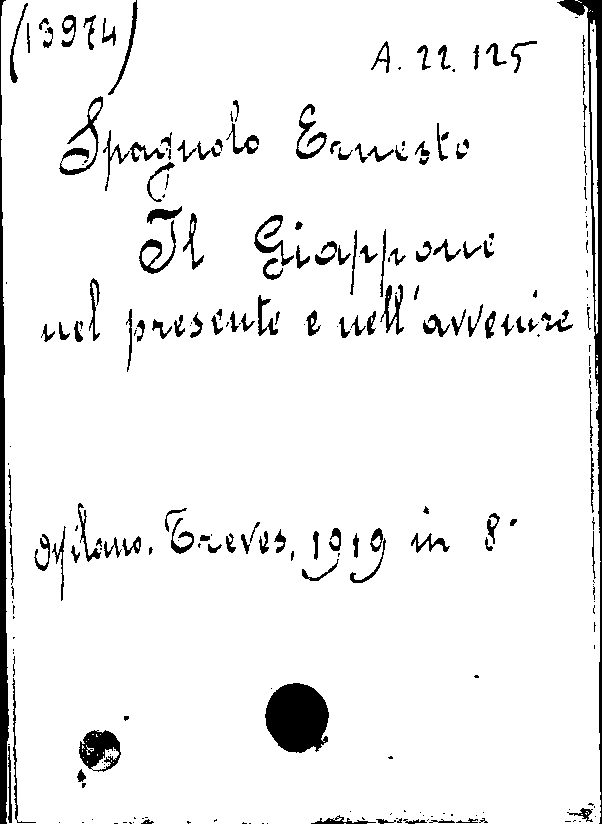 (13974)
A. 22. 125
Spagnolo Ernesto
Il Giappone
nel presente e nell'avvenire
Milano. Treves, 1919 in 8°